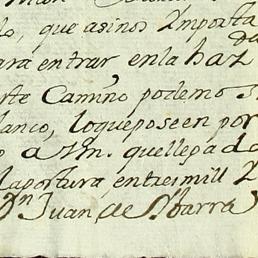 lo, que a sinos Importa
para entrar en la haz da
rte Camino podemo s
lanco, loqueposeen por
o a Jm. quellegado
laportura, entreimill
Dn Juan de Ybarra